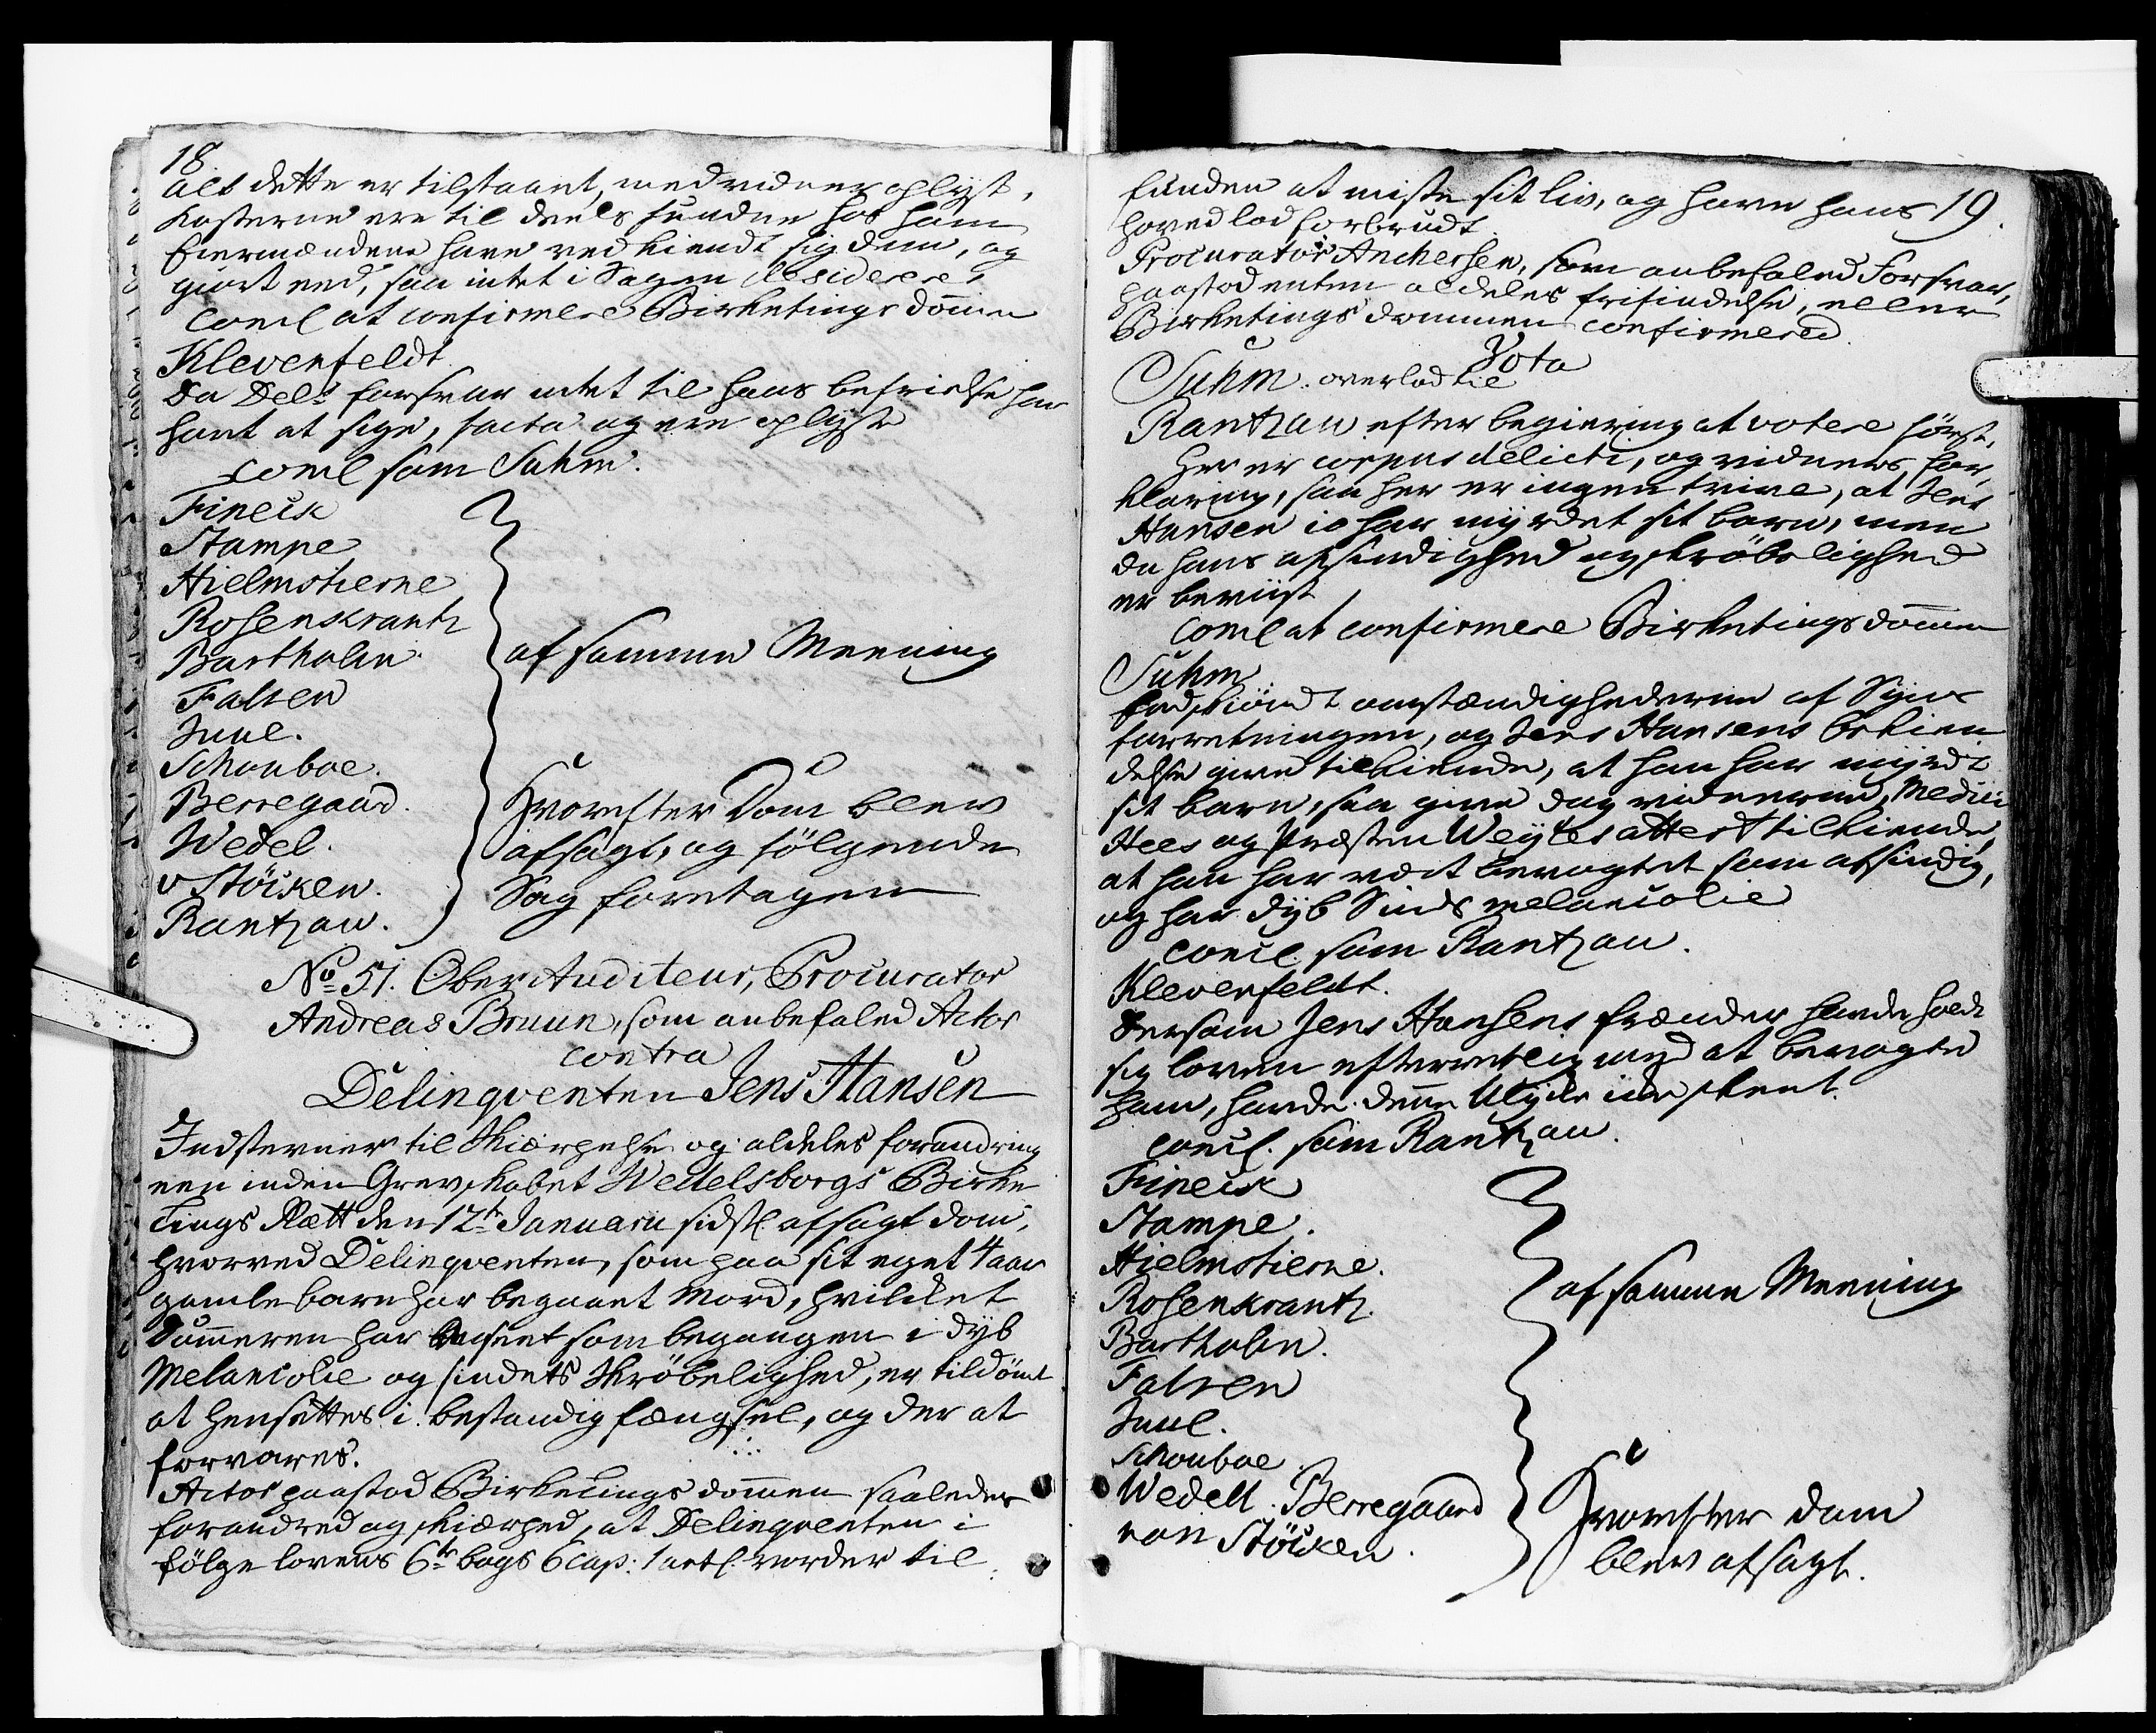 18
alt dette er tilstaaet, med vidner oplyst,
Kosterne ere til deels fundne hos ham
Eiermændene have vedkiendt sig dem, og
giort eed, saa intet i Sagen desidereres
concl at confirmere Birketings dom̄en
Klevenfeldt
Da Delqt forsvar intet til hans befrielse har
havt at sige, facta og ere oplyste
concl som Suhm.
Fineck
Stampe
Hielmstierne
Rosenkrantz
Bartholin
Falsen
Juul.
Schouboe.
Berregaard.
Wedel.
v Stöcken.
Rantzau.
af samme Meening
Hvorefter Dom blev
afsagt, og fölgende
Sag foretagen
No 51. Ober Auditeur, Procurator
Andreas Bruun, som anbefaled Actor
contra
Delinqventen Jens Hansen
Indstevner til Skiærpelse og aldeles forandring
een inden Grevskabet Wedelsborgs Birke
Tings Rætt den 12te Januarii sidstl. afsagt dom,
hvorved Delinqventen, som paa sit eget 4 aar
gamle barn har begaaet Mord, hvilket
Dom̄eren har anseet som begangen i dyb
Melancolie og sindets Skröbelighed, er tildömt
at hensættes i bestandig fængsel, og der at
forvares.
Actor paastod Birketings dom̄en saaledes
forandred og skiærped, at Delinqventen i
fölge lovens 6te bogs 6 cap: 1 artl. vorder til
19.
funden at miste sit liv, og have hans
hoved lod forbrudt.
Procurator Anchersen, som anbefaled Forsvar,
paastod enten aldeles frifindelse, eller
Birketings dommen confirmered.
Vota
Suhm. overlod til
Rantzau efter begiering at votere först.
Her er corpus delicti, og vidners for
klaring, saa her er ingen tvivl, at Jens
Hansen jo har myrdet sit barn, men
da hans afsindighed og skröbelighed
er beviist
concl at confirmere Birketings dom̄en
Suhm
Endskiöndt omstændighederne af Syns
forretningen, og Jens Hansens bekien
delse give tilkiende, at han har myrdt
sit barn, saa give dog vidnerne, Medici
Hees og Præsten Weyles attest tilkiende,
at han har vært bevogtet som afsindig,
og har dyb Sinds melancolie
concl. som Rantzau.
Klevenfeldt.
Dersom Jens Hansens frænder havde holdt
sig loven efterrettelig med at bevogte
ham, havde denne Ulykke icke skeet.
concl. som Rantzau.
Fineck
Stampe.
Hielmstierne.
Rosenkrantz.
Bartholin.
Falsen
Juul.
Schouboe.
Wedell. Berregaard
von Stöcken.
af samme Meening
Hvorefter dom
blev afsagt.